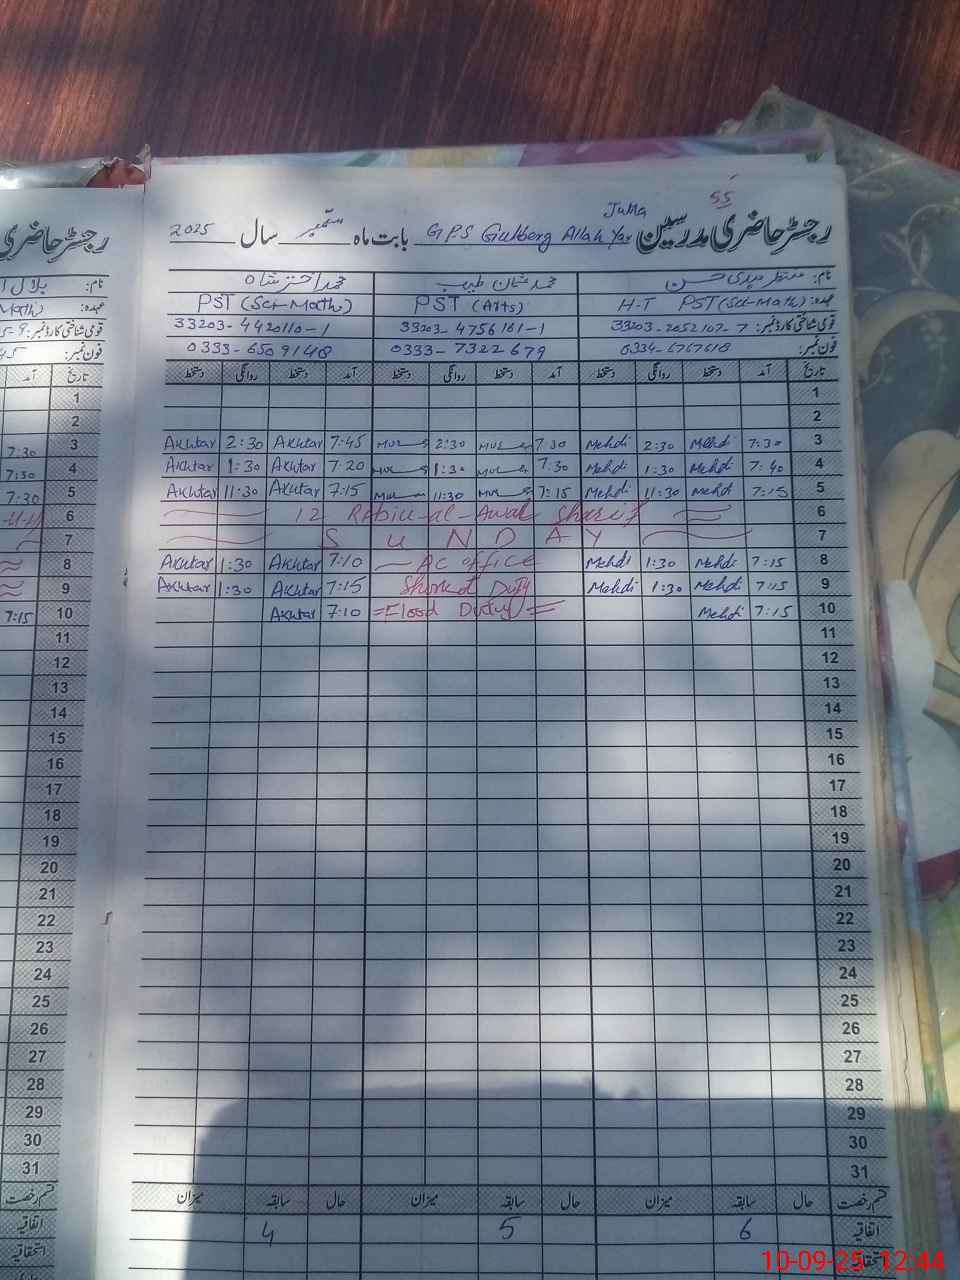 55
رجسٹر حاضری مدرسین GPS Gulberg Allah Yar Juma بابت ماہ ستمبر سال 2025
نام: منظر مہدی حسن محمد شان طیب محمد اختر شاہ
عہدہ: H-T PST(Sci-Math) PST (Arts) PST (Sci-Math)
قومی شناختی کارڈ نمبر: 33203-2052107-7 33203-4756161-1 33203-4420110-1
فون نمبر: 0334-6767618 0333-7322679 0333-6509148
تاریخ آمد دستخط روانگی دستخط آمد دستخط روانگی دستخط آمد دستخط روانگی دستخط
1
2
3 7:30 Mehdi 2:30 Mehdi 7:30 2:30 7:45 Akhtar 2:30 Akhtar
4 7:40 Mehdi 1:30 Mehdi 7:30 1:30 7:20 Akhtar 1:30 Akhtar
5 7:15 Mehdi 11:30 Mehdi 7:15 11:30 7:15 Akhtar 11:30 Akhtar
6 12 Rabiu-al-Awal Sharif
7 S U N D A Y
8 7:15 Mehdi 1:30 Mehdi AC office 7:10 Akhtar 1:30 Akhtar
9 7:15 Mehdi 1:30 Mehdi Duty 7:15 Akhtar 1:30 Akhtar
10 7:15 Mehdi =Flood Duty= 7:10 Akhtar
11
12
13
14
15
16
17
18
19
20
21
22
23
24
25
26
27
28
29
30
31
قسم رخصت حال سابقہ میزان حال سابقہ میزان حال سابقہ میزان
اتفاقیہ 6 5 4
استحقاقیہ
رجسٹر حاضری
نام: بلال
عہدہ: Math)
قومی شناختی کارڈ نمبر:
فون نمبر:
تاریخ آمد
1
2
3 7:30
4 7:30
5 7:30
6
7
8
9
10 7:15
11
12
13
14
15
16
17
18
19
20
21
22
23
24
25
26
27
28
29
30
31
قسم رخصت
اتفاقیہ
استحقاقیہ
10-09-25 12:44